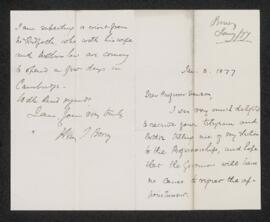 Bury
Jan 3. 1877
Dear Professor
I am very much delighted
to receive your telegram and
letter telling me of my election
to the Professorship, and hope
that the Governors will have
no cause to regret the ap-
pointment.
I am expecting a visit from
who with his wife
and are coming
to spend a few days in
Cambridge.
With kind regards,
I am Yours very truly